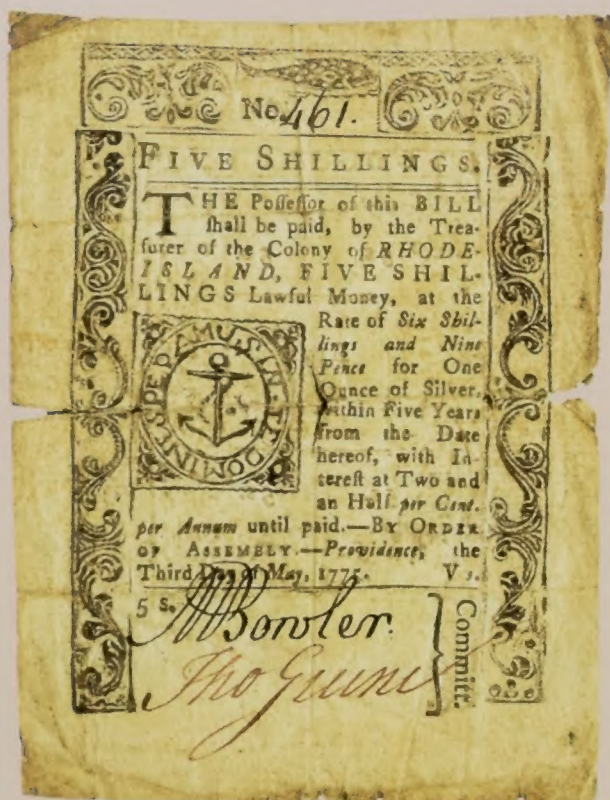 No. 461.
FIVE SHILLINGS.
THE Poſſeſſor of this BILL
ſhall be paid, by the Trea-
ſurer of the Colony of RHODE-
ISLAND, FIVE SHIL-
LINGS Lawful Money, at the
Rate of Six Shil-
lings and Nine
Pence for One
Ounce of Silver,
within Five Years
from the Date
hereof, with In-
tereſt at Two and
an Half per Cent.
per Annum until paid.—BY ORDER
OF ASSEMBLY.—Providence, the
Third Day of May, 1775. V s.
IN TE DOMINE SPERAMUS
5 s.
Bowler.
Tho Greene
Committ.